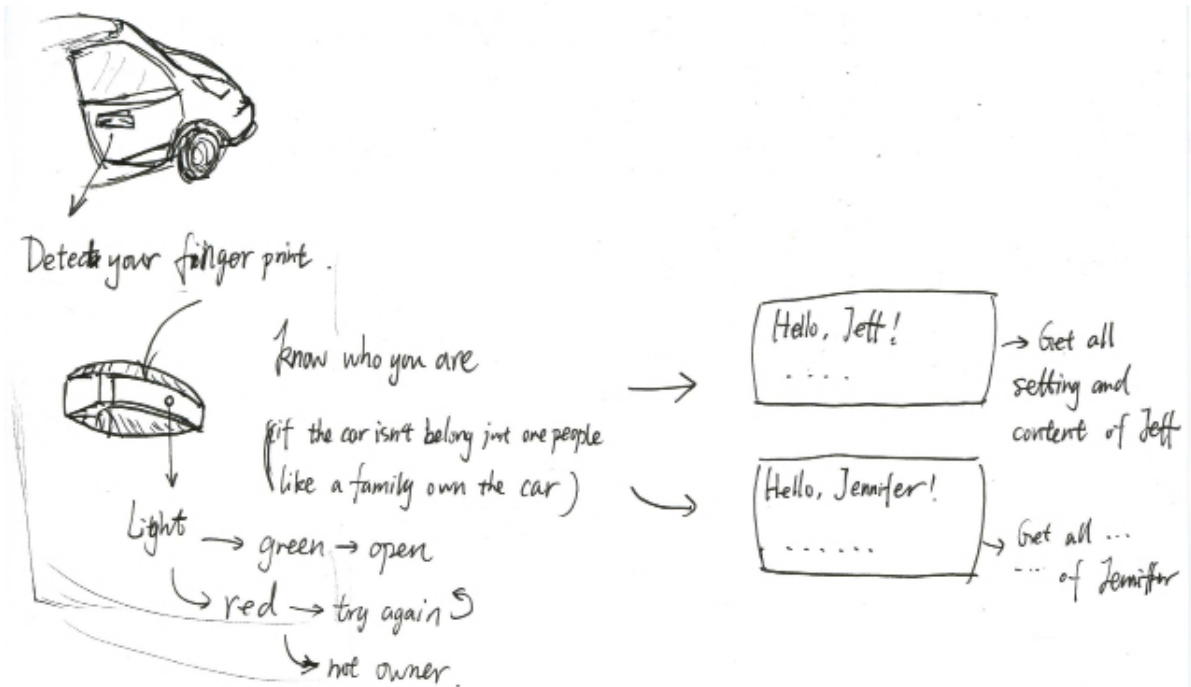 Detect your finger print.
know who you are
(if the car isn't belong just one people
like a family own the car)
Light
→ green → open
→ red → try again
→ not owner.
Hello, Jeff!
. . . .
→ Get all
setting and
content of Jeff
Hello, Jennifer!
. . . . . .
→ Get all ...
... of Jennifer